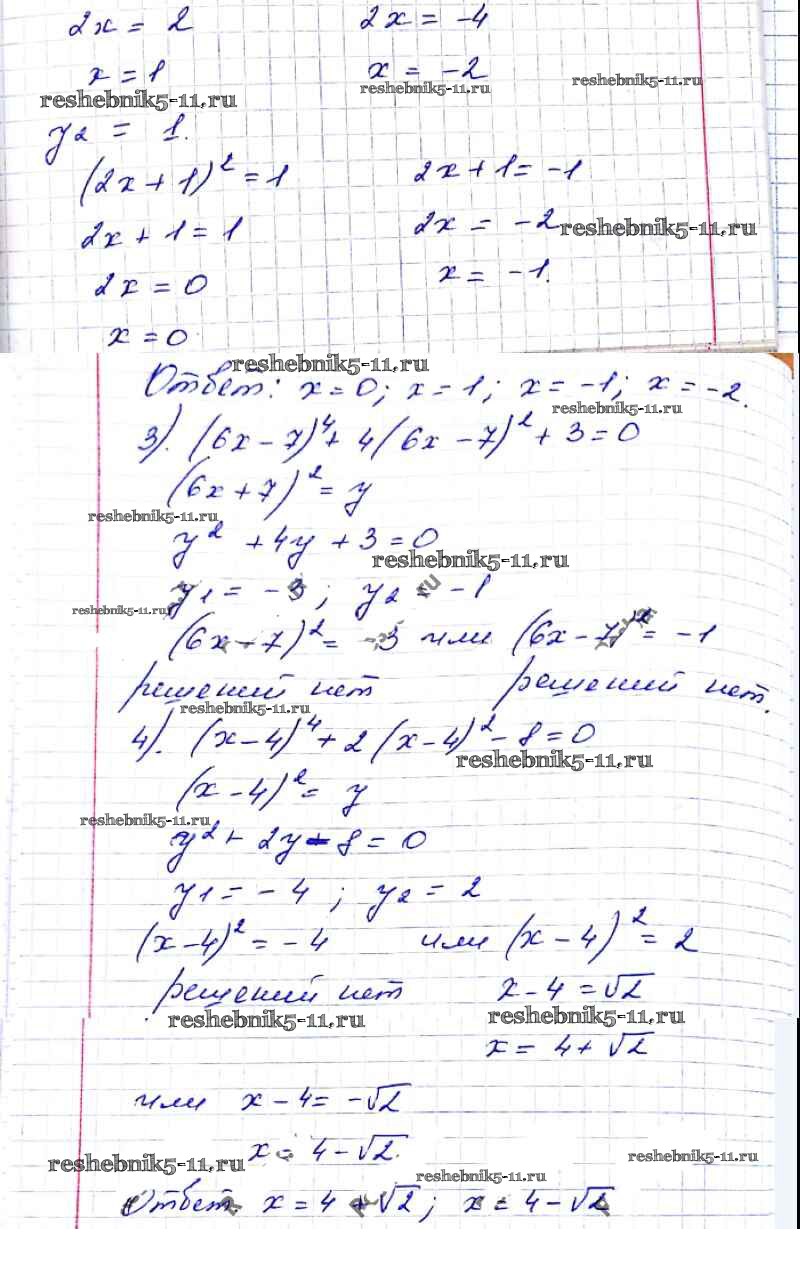 2x = 2 2x = -4
x = 1 x = -2
reshebnik5-11.ru reshebnik5-11.ru reshebnik5-11.ru
y₂ = 1.
(2x + 1)² = 1 2x + 1 = -1
2x + 1 = 1 2x = -2 reshebnik5-11.ru
2x = 0 x = -1.
x = 0
reshebnik5-11.ru
Ответ: x = 0; x = 1; x = -1; x = -2.
reshebnik5-11.ru
3). (6x - 7)⁴ + 4(6x - 7)² + 3 = 0
(6x + 7)² = y
reshebnik5-11.ru
y² + 4y + 3 = 0
reshebnik5-11.ru
y₁ = -3; y₂ = -1
reshebnik5-11.ru
(6x - 7)² = -3 или (6x - 7)² = -1
решений нет решений нет.
reshebnik5-11.ru
4). (x - 4)⁴ + 2(x - 4)² - 8 = 0
reshebnik5-11.ru
(x - 4)² = y
reshebnik5-11.ru
y² + 2y - 8 = 0
y₁ = -4; y₂ = 2
(x - 4)² = -4 или (x - 4)² = 2
решений нет x - 4 = √2
reshebnik5-11.ru reshebnik5-11.ru
x = 4 + √2
или x - 4 = -√2
x = 4 - √2.
reshebnik5-11.ru reshebnik5-11.ru
reshebnik5-11.ru
Ответ x = 4 + √2; x = 4 - √2